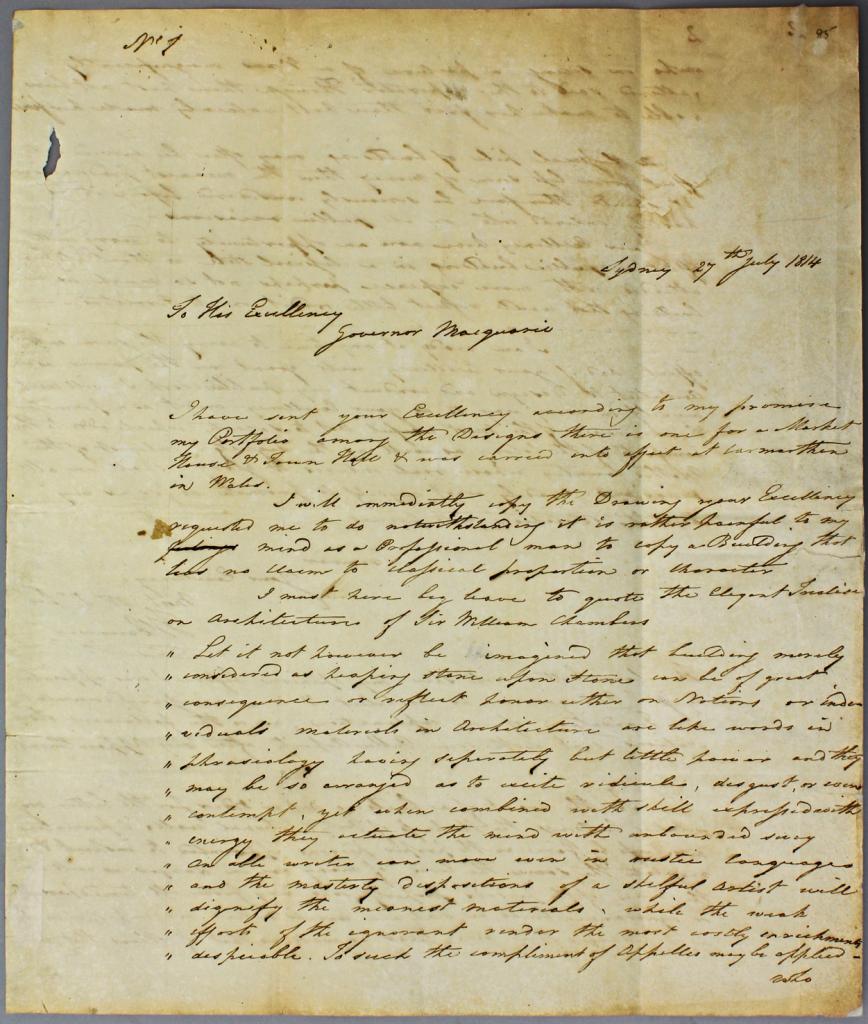 No 1
95
Sydney 27th July 1814
To His Excellency
Governor Macquarie
I have sent your Excellency according to my promise
my Portfolio among the Designs there is one for a Market
House & Town Hall & was carried into effect at Carmarthen
in Wales.
I will immediatly copy the Drawing your Excellency
requested me to do notwithstanding it is rather painful to my
feelings mind as a Professional man to copy a Building that
has no claim to classical proportion or character
I must here beg leave to quote the Elegant Treatise
on Architecture of Sir William Chambers
" Let it not however be imagined that building merely
" considered as heaping stone upon stone can be of great
" consequence or reflect honor either on Nations or indi
" viduals materials in Architecture are like words in
" phrasiology having seperately but little power and they
" may be so arranged as to excite ridicule, disgust, or even
" contempt, yet when combined with skill expressed with
" energy they actuate the mind with unbounded sway
" an able writer can move even in rustic language
" and the masterly dispositions of a skilful artist will
" dignify the meanest materials, while the weak
" efforts of the ignorant render the most costly enrichments
" despicable. To such the compliment of Appelles may be applied
who